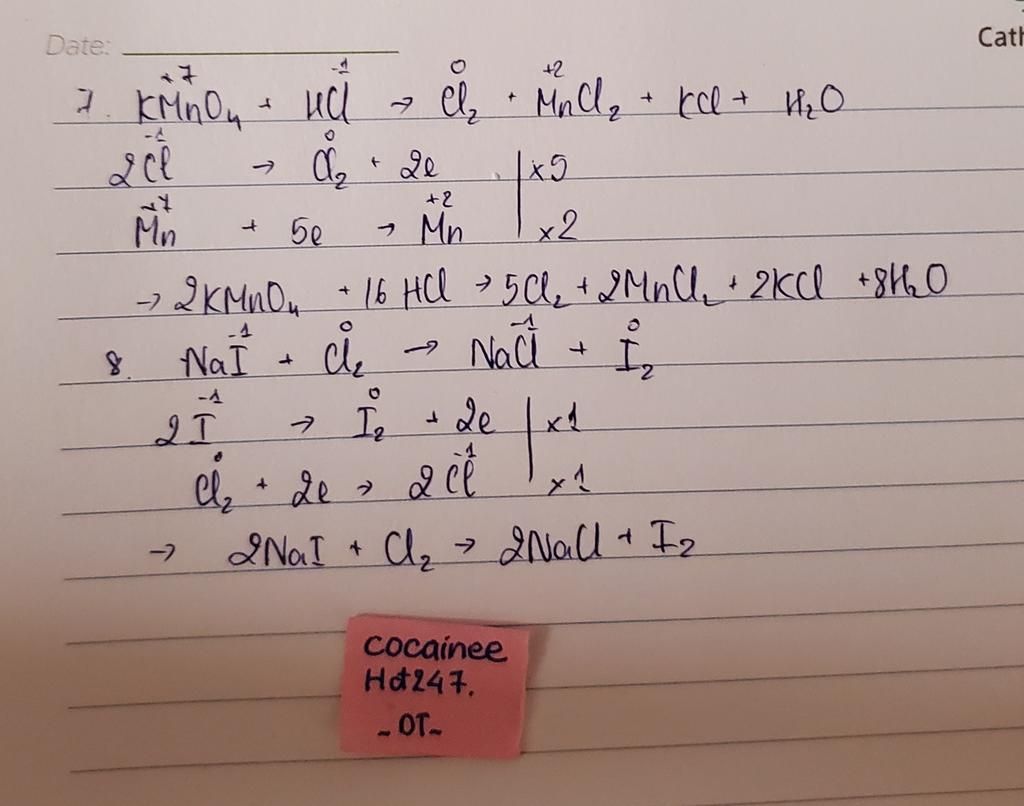 Date:
Cath
7. KMnO₄ + HCl → Cl₂ + MnCl₂ + KCl + H₂O
+7 -1 0 +2
2Cl → Cl₂ + 2e | x5
-1 0
Mn + 5e → Mn | x2
+7 +2
→ 2KMnO₄ + 16 HCl → 5Cl₂ + 2MnCl₂ + 2KCl + 8H₂O
8. NaI + Cl₂ → NaCl + I₂
-1 0 -1 0
2I → I₂ + 2e | x1
-1 0
Cl₂ + 2e → 2Cl | x1
0 -1
→ 2NaI + Cl₂ → 2NaCl + I₂
cocainee
Hot247.
~OT~